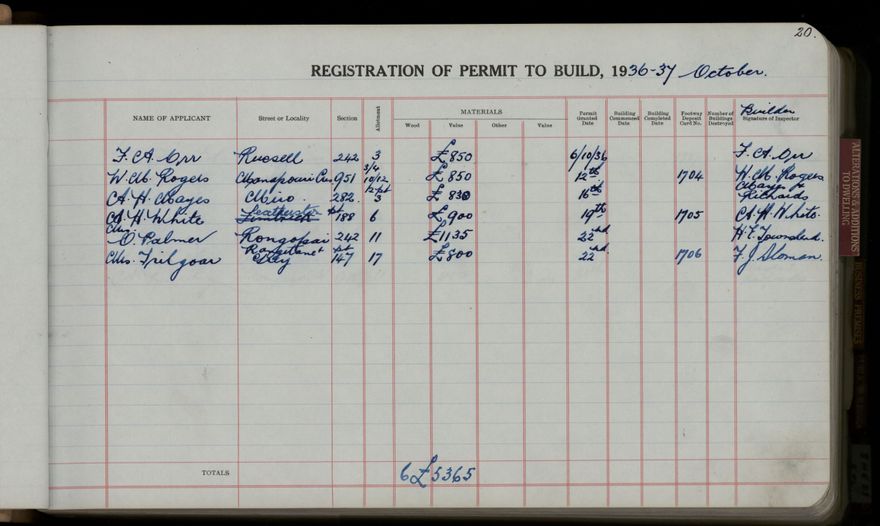 20.
REGISTRATION OF PERMIT TO BUILD, 1936-37 October.
NAME OF APPLICANT Street or Locality Section Allotment MATERIALS Wood Value Other Value Permit Granted Date Building Commenced Date Building Completed Date Footway Deposit Card No. Number of Buildings Destroyed Builder Signature of Inspector
F. A. Orr Russell 242 3 £850 6/10/36 F. A. Orr
W. M. Rogers Manapouri Cres 951 3/4 10/12 £850 12th 1704 W. M. Rogers
A. H. Mayes Miro. 282 12 pt 3 £830 16th Mayes & Richards
A. H. White Featherston pt 188 6 £900 19th 1705 A. H. White
O. Palmer Rongopai 242 11 £1135 22nd H. E. Townshend.
Mrs. Grey pt 147 17 £800 22nd 1706 F. J. Sloman.
TOTALS 6 £5365
ALTERATIONS & ADDITIONS TO DWELLING.
BUSINESS PREMISES